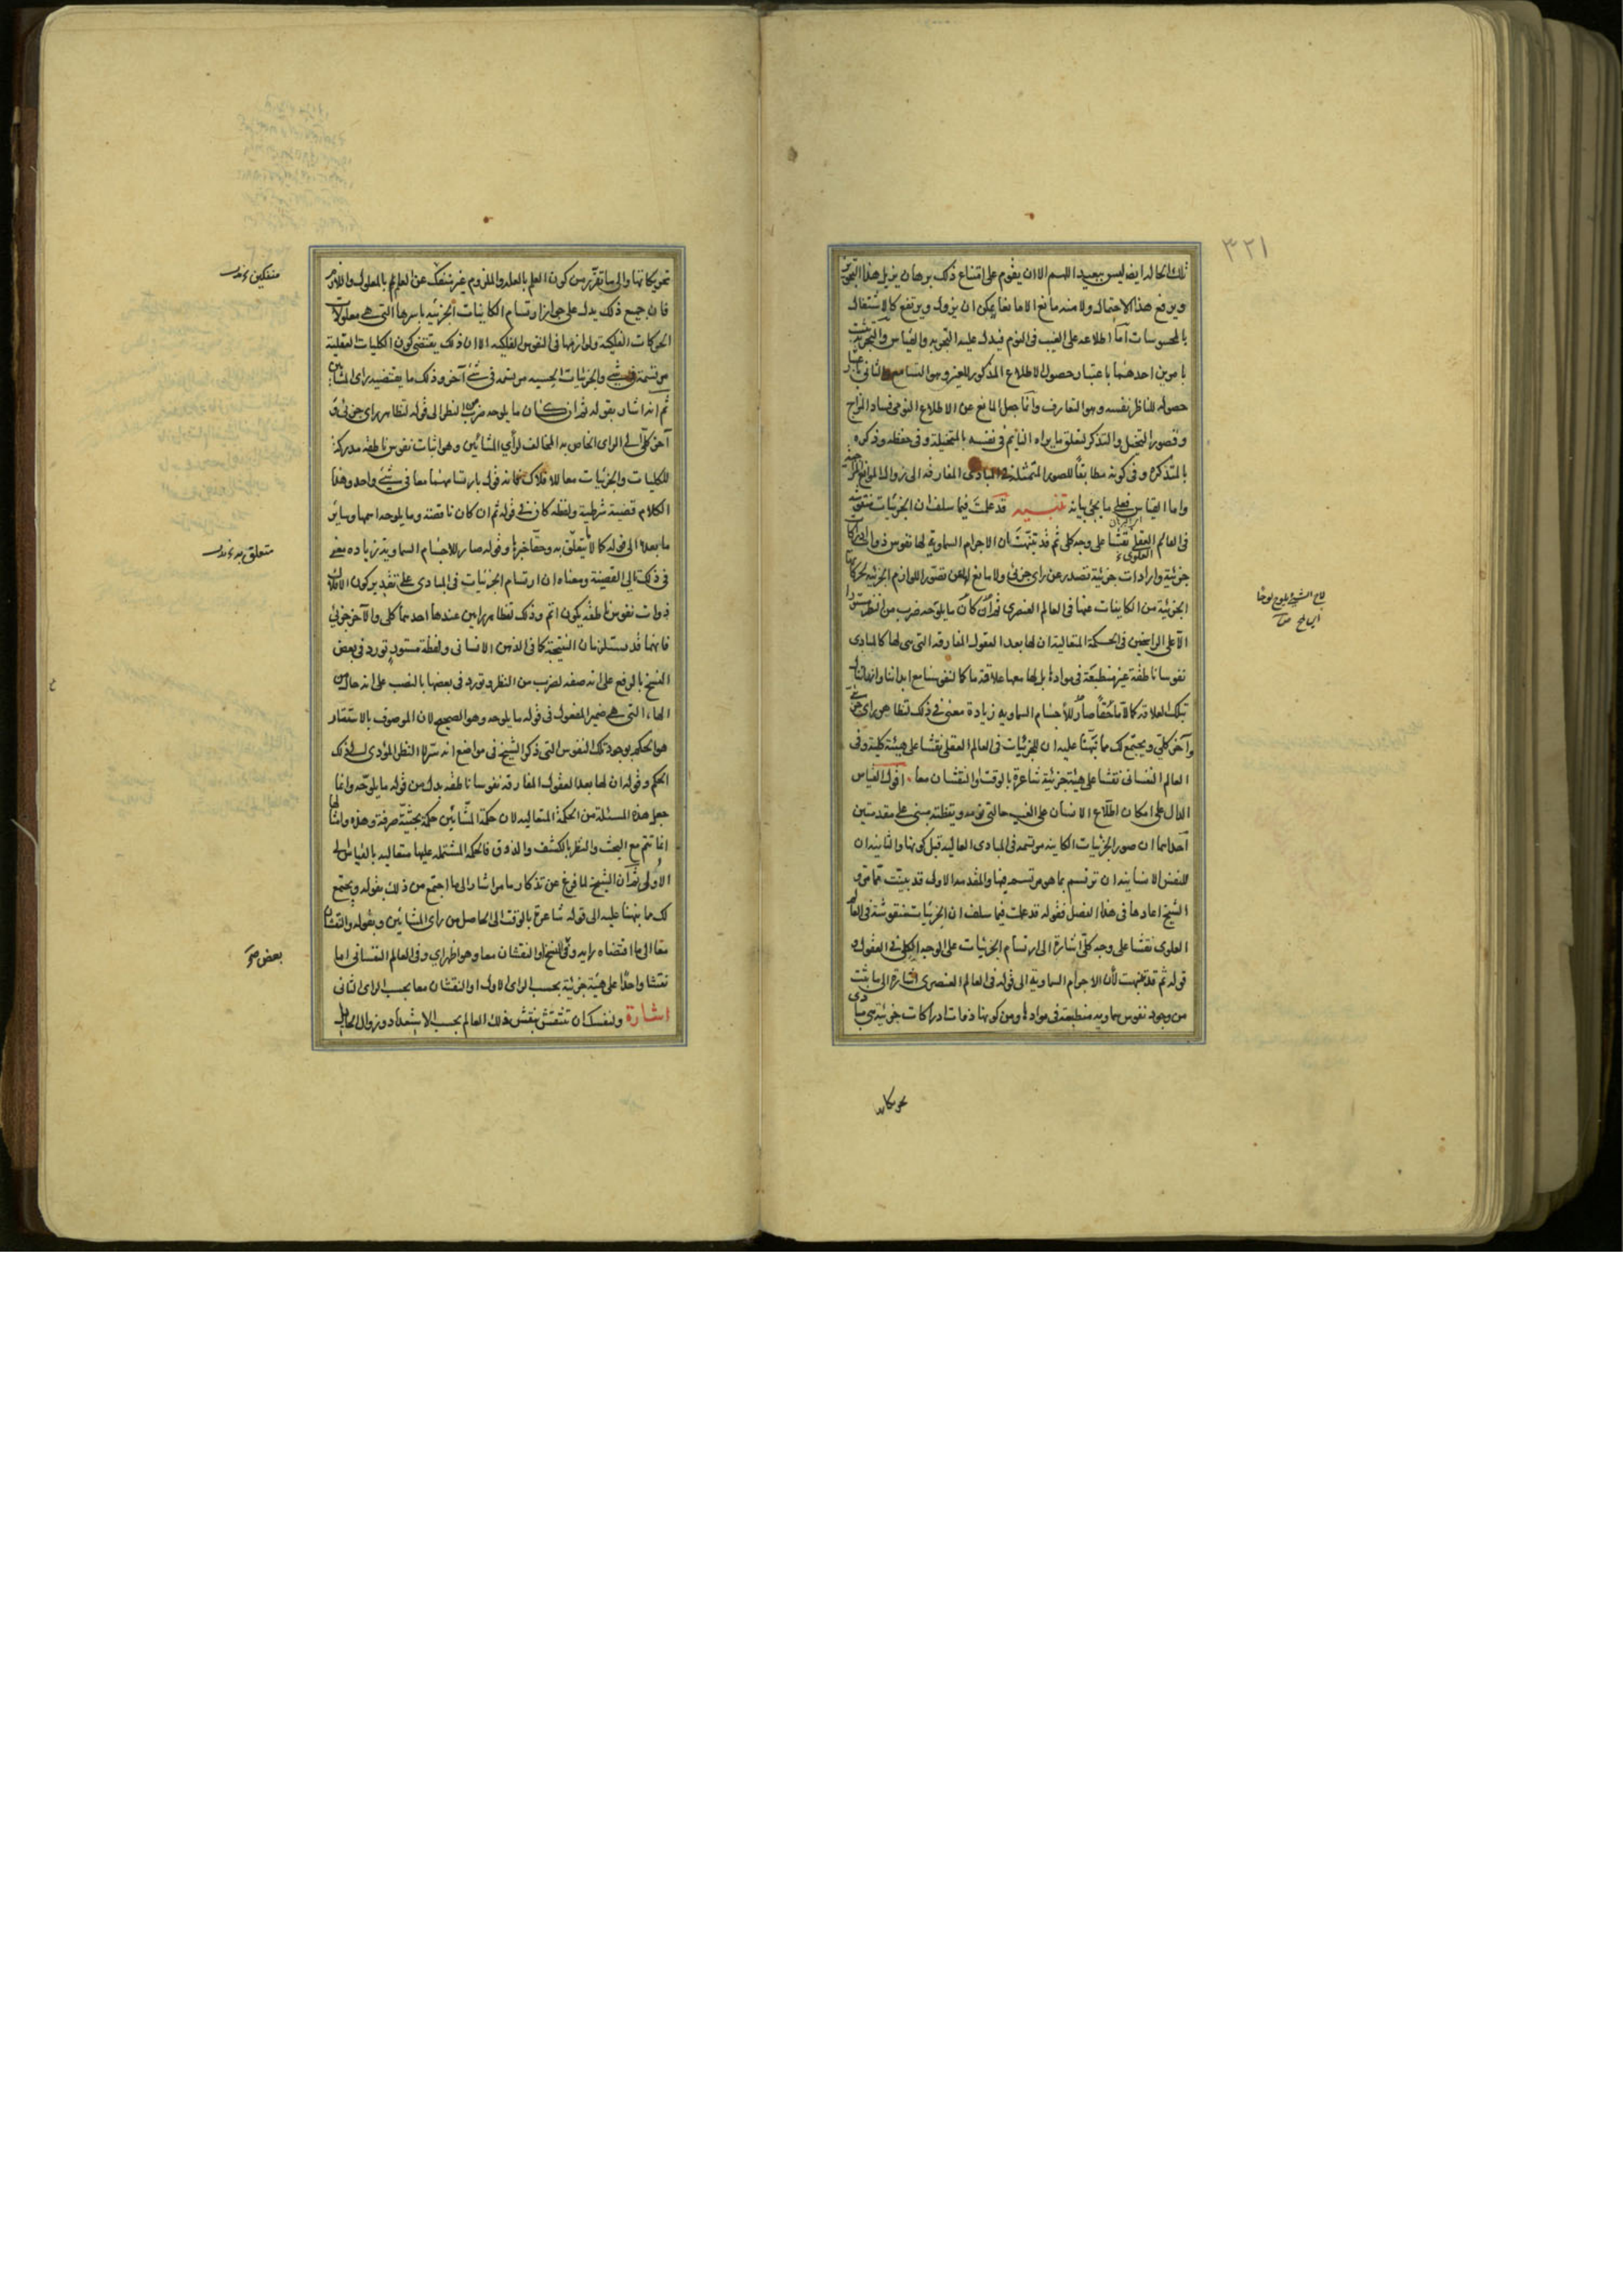 ٣٢١
تلك الحالة ايضا ليس ببعيد اللهم الا ان يقوم على امتناع ذلك برهان يزيل هذا التجويز
ويرفع هذا الاحتمال ولا منه مانع الا مانعا يمكن ان يزول ويرتفع كالاشتغال
بالمحسوسات اما اطلاعه على الغيب فى النوم فيدل عليه التجربة والقياس والتجربة تثبت
بامرين احدهما باعتبار حصول الاطلاع المذكور للغير وهو التسامع والثانى باعتبار
حصوله للناظر نفسه وهو التعارف وانما جعل المانع عن الاطلاع النومى فساد المزاج
وقصور التخيل والتذكر لتعلق ما يراه النايم فى نفسه بالمتخيلة وفى حفظه وذكره
بالمتذكرة وفى كونه مطابقا للصور المتمثلة فى المبادى المفارقة الى زوال الموانع المزاجية
واما القياس فعلى ما يجئ بيانه تنبيه قد علمت فيما سلف ان الجزئيات منقوشة
فى العالم العقلى نقشا على وجه كلى ثم قد تنبهت لان الاجرام السماوية لها نفوس ذوات ادراكات
العلوى
جزئية وارادات جزئية تصدر عن راى جزئى ولا مانع لها عن تصور اللوازم الجزئية لحركاتها
الجزئية من الكاينات عنها فى العالم العنصرى ثم ان كان ما يلوحه ضرب من النظر مستورا
الا على الراسخين فى الحكمة المتعالية ان لها بعد العقول المفارقة التى هى لها كالمبادى
نفوسا ناطقة غير منطبعة فى موادها بل لها معها علاقة ما كما لنفوسنا مع ابداننا وانها تنال
بتلك العلاقة كمالا ما حقا صار للاجسام السماوية زيادة معنى فى ذلك لتظاهر راى جزئى
وآخر كلى ويجتمع لك مما نبهنا عليه ان للجزئيات فى العالم العقلى نقشا على هيئة كلية وفى
العالم النفسانى نقشا على هيئة جزئية شاعرة بالوقت او النقشان معا اقول القياس
الدال على امكان اطلاع الانسان على الغيب حالتى نومه ويقظته مبنى على مقدمتين
احداهما ان صور الجزئيات الكاينة مرتسمة فى المبادى العالية قبل كونها والثانية ان
للنفس الانسانية ان ترتسم بما هو مرتسم فيها والمقدمة الاولى قد بينت مما مر و
الشيخ اعادها فى هذا الفصل فقوله قد علمت فيما سلف ان الجزئيات منقوشة فى العالم
العلوى نقشا على وجه كلى اشارة الى ارتسام الجزئيات على الوجه الكلى فى العقول و
قوله ثم قد تنبهت لان الاجرام السماوية الى قوله فى العالم العنصرى اشارة الى ما ثبت
من وجود نفوس سماوية منطبعة فى موادها ومن كونها ذوات ادراكات جزئية هى مبادى
تحريكاتها والى ما تقرر من كون العلم بالعلة والملزوم غير منفك عن العلم بالمعلول واللازم
فان جميع ذلك يدل على جواز ارتسام الكاينات الجزئية باسرها التى هى معلولات
الحركات الفلكية ولوازمها فى النفوس الفلكية الا ان ذلك يقتضى كون الكليات العقلية
مرتسمة فى شئ والجزئيات الحسية مرتسمة فى شئ آخر وذلك ما يقتضيه راى المشائين
ثم انه اشار بقوله ثم ان كان ما يلوحه ضرب من النظر الى قوله لتظاهر راى جزئى و
آخر كلى الى الراى الخاص به المخالف لرأى المشائين وهو اثبات نفوس ناطقة مدركة
للكليات والجزئيات معا للافلاك فانه قول بارتسامهما معا فى شئ واحد وهذا
الكلام قضية شرطية ولفظة كان فى قوله ثم ان كان ناقصة وما يلوحه اسمها وساير
ما بعده الى قوله كمالا ما يتعلق به وحقا خبرها وقوله صار للاجسام السماوية زيادة معنى
فى ذلك تالى القضية ومعناه ان ارتسام الجزئيات فى المبادى على تقدير كون الافلاك
ذوات نفوس ناطقة يكون اتم وذلك لتظاهر رايين عندها احدهما كلى والآخر جزئى
فانهما قد يستلزمان النتيجة كما فى الذهن الانسانى ولفظة مستورا تورد فى بعض
النسخ بالرفع على انه صفة لضرب من النظر وتورد فى بعضها بالنصب على انه حال من
الهاء التى هى ضمير المفعول فى قوله ما يلوحه وهو الصحيح لان الموصوف بالاستتار
هو الحكم بوجود تلك النفوس التى ذكر الشيخ فى مواضع انه سر لا النظر المؤدى الى ذلك
الحكم وقوله ان لها بعد العقول المفارقة نفوسا ناطقة بدل من قوله ما يلوحه وانما
جعل هذه المسئلة من الحكمة المتعالية لان حكمة المشائين حكمة بحثية صرفة وهذه وامثالها
انما تتم مع البحث والنظر بالكشف والذوق فالحكمة المشتملة عليها متعالية بالقياس الى
الاولى ثم ان الشيخ لما فرغ عن تذكار ما مر اشار الى ما اجتمع من ذلك بقوله ويجتمع
لك مما نبهنا عليه الى قوله شاعرة بالوقت الى الحاصل من راى المشائين وبقوله والنقشان
معا الى ما اقتضاه رايه وفى بعض النسخ او النقشان معا وهو اظهر اى وفى العالم النفسانى اما
نقشا واحدا على هيئة جزئية بحسب الراى الاول او النقشان معا بحسب الراى الثانى
اشارة ولنفسك ان تنتقش بنقش ذلك العالم بحسب الاستعداد وزوال الحايل